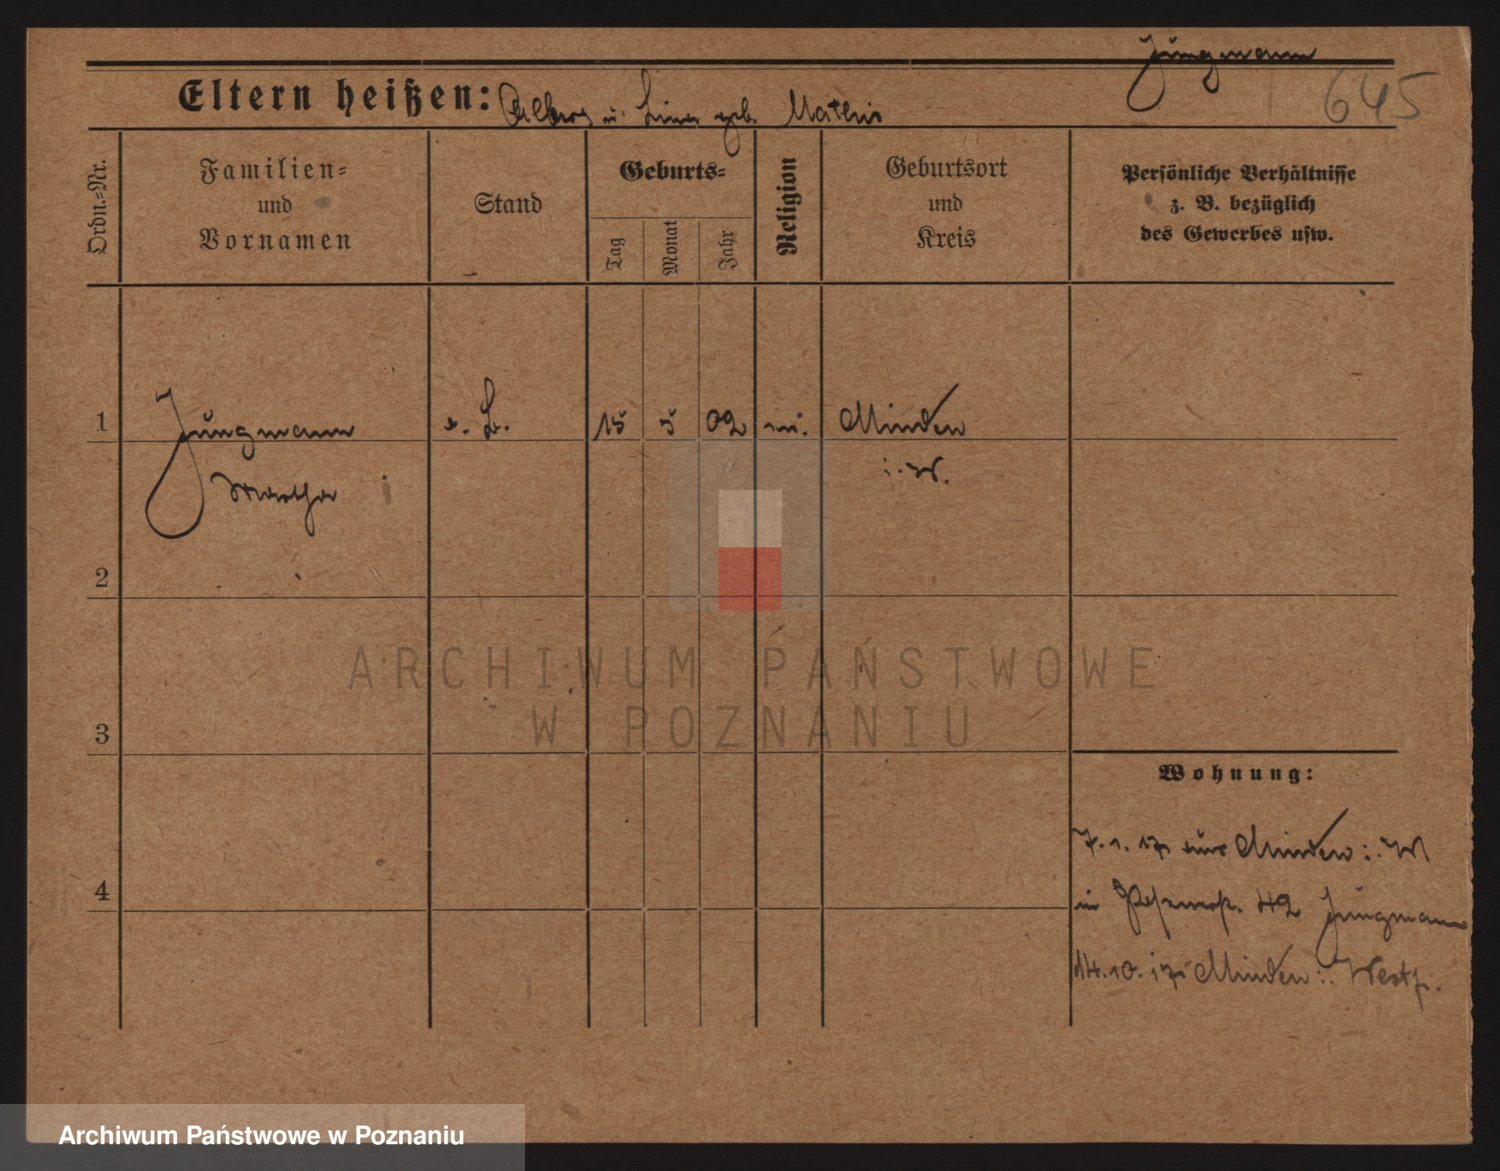 Jungmann
645
Eltern heißen: u. Lina geb. Mathis
Ordn.-Nr.
Familien-
und
Vornamen
Stand
Geburts-
Tag
Monat
Jahr
Religion
Geburtsort
und
Kreis
Persönliche Verhältnisse
z. B. bezüglich
des Gewerbes usw.
1 Jungmann 15 5 02 Minden
Martha i. W.
2
3
4
Wohnung:
7. 1. 17 aus Minden i. W
42 Jungmann
14. 10. 17 Minden i. Westf.
ARCHIWUM PAŃSTWOWE
W POZNANIU
Archiwum Państwowe w Poznaniu